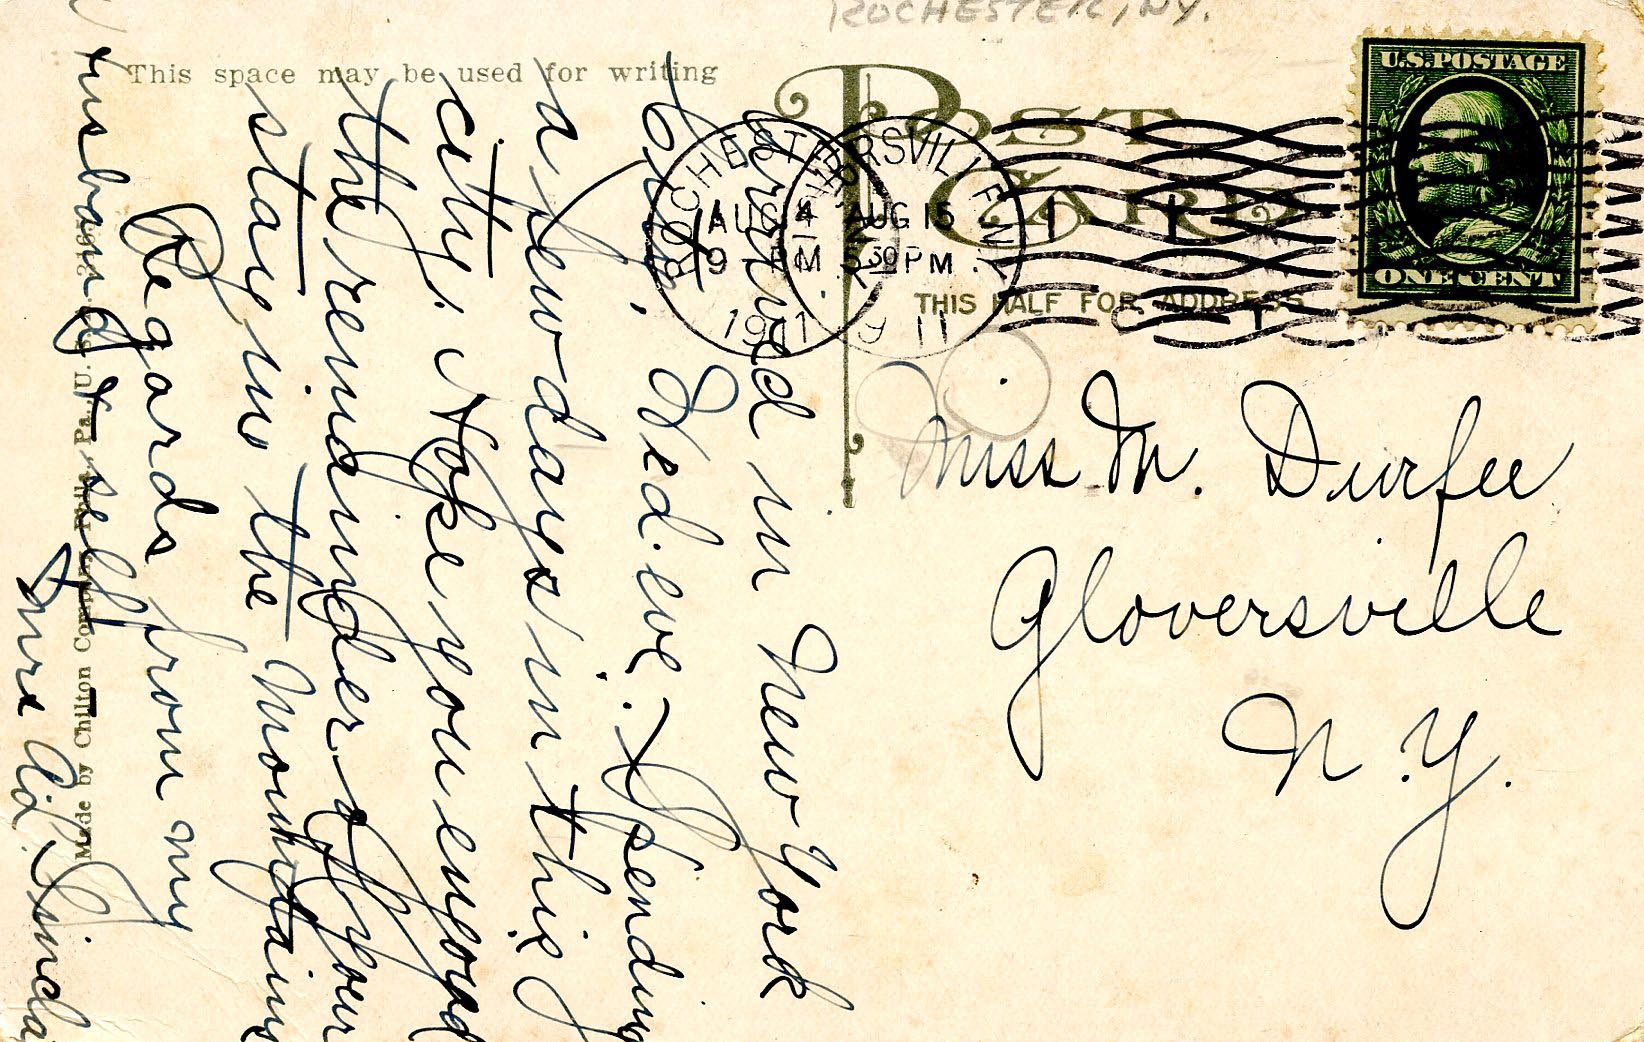 ROCHESTER, NY.
This space may be used for writing
POST CARD
THIS HALF FOR ADDRESS
U.S. POSTAGE
ONE CENT
ROCHESTER
AUG 14
9 - PM
1911
N.Y.
GLOVERSVILLE, N.Y.
AUG 15
5 30 PM
11
Miss M. Durfee
Gloversville
N. Y.
Arrived in New York
City, Wed. eve. Spending
a few days in this
city. Hope you enjoyed
the remainder of your
stay in the Mountains
Regards from my
husband & self
Mrs
Made by Chilton Company, Phila., Pa., U. S.